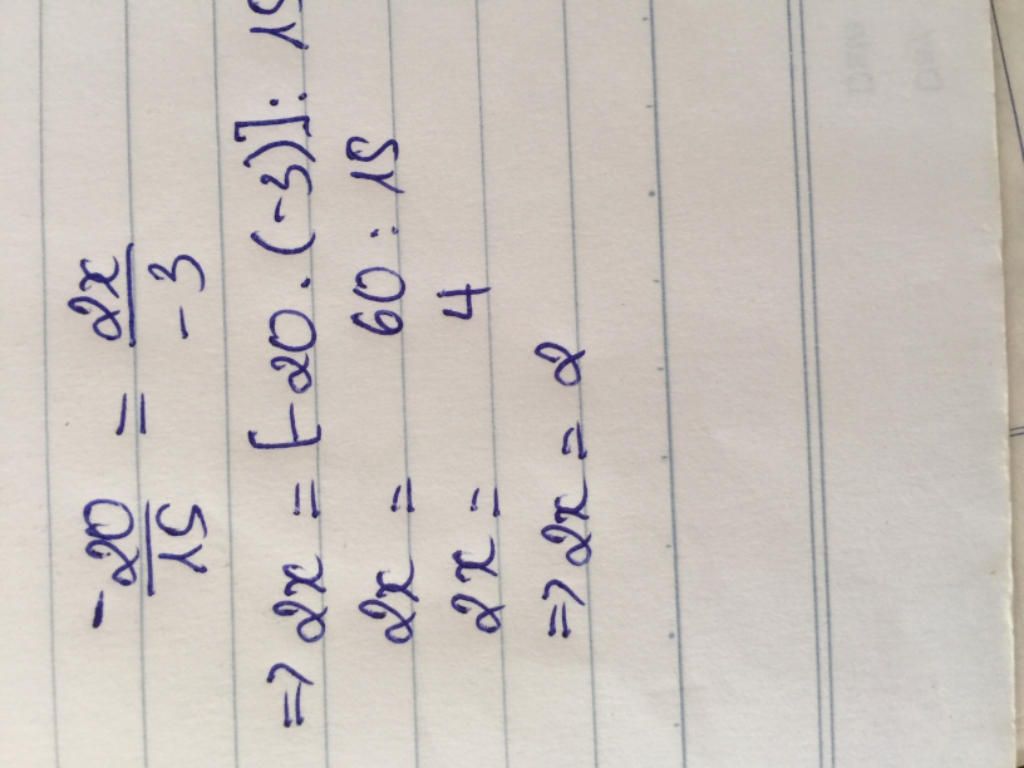 -20/15 = 2x/-3
=> 2x = [-20 . (-3)] : 15
2x = 60 : 15
2x = 4
=> 2x = 2